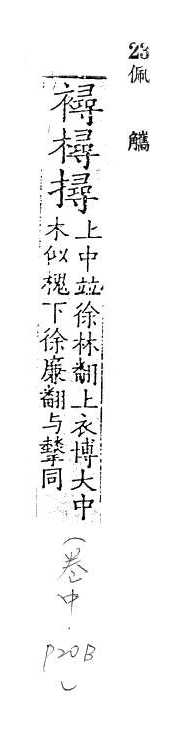 23 佩觿
襑樳撏
上中竝徐林翻上衣博大中
木似槐下徐廉翻与同
(卷中. P20B)